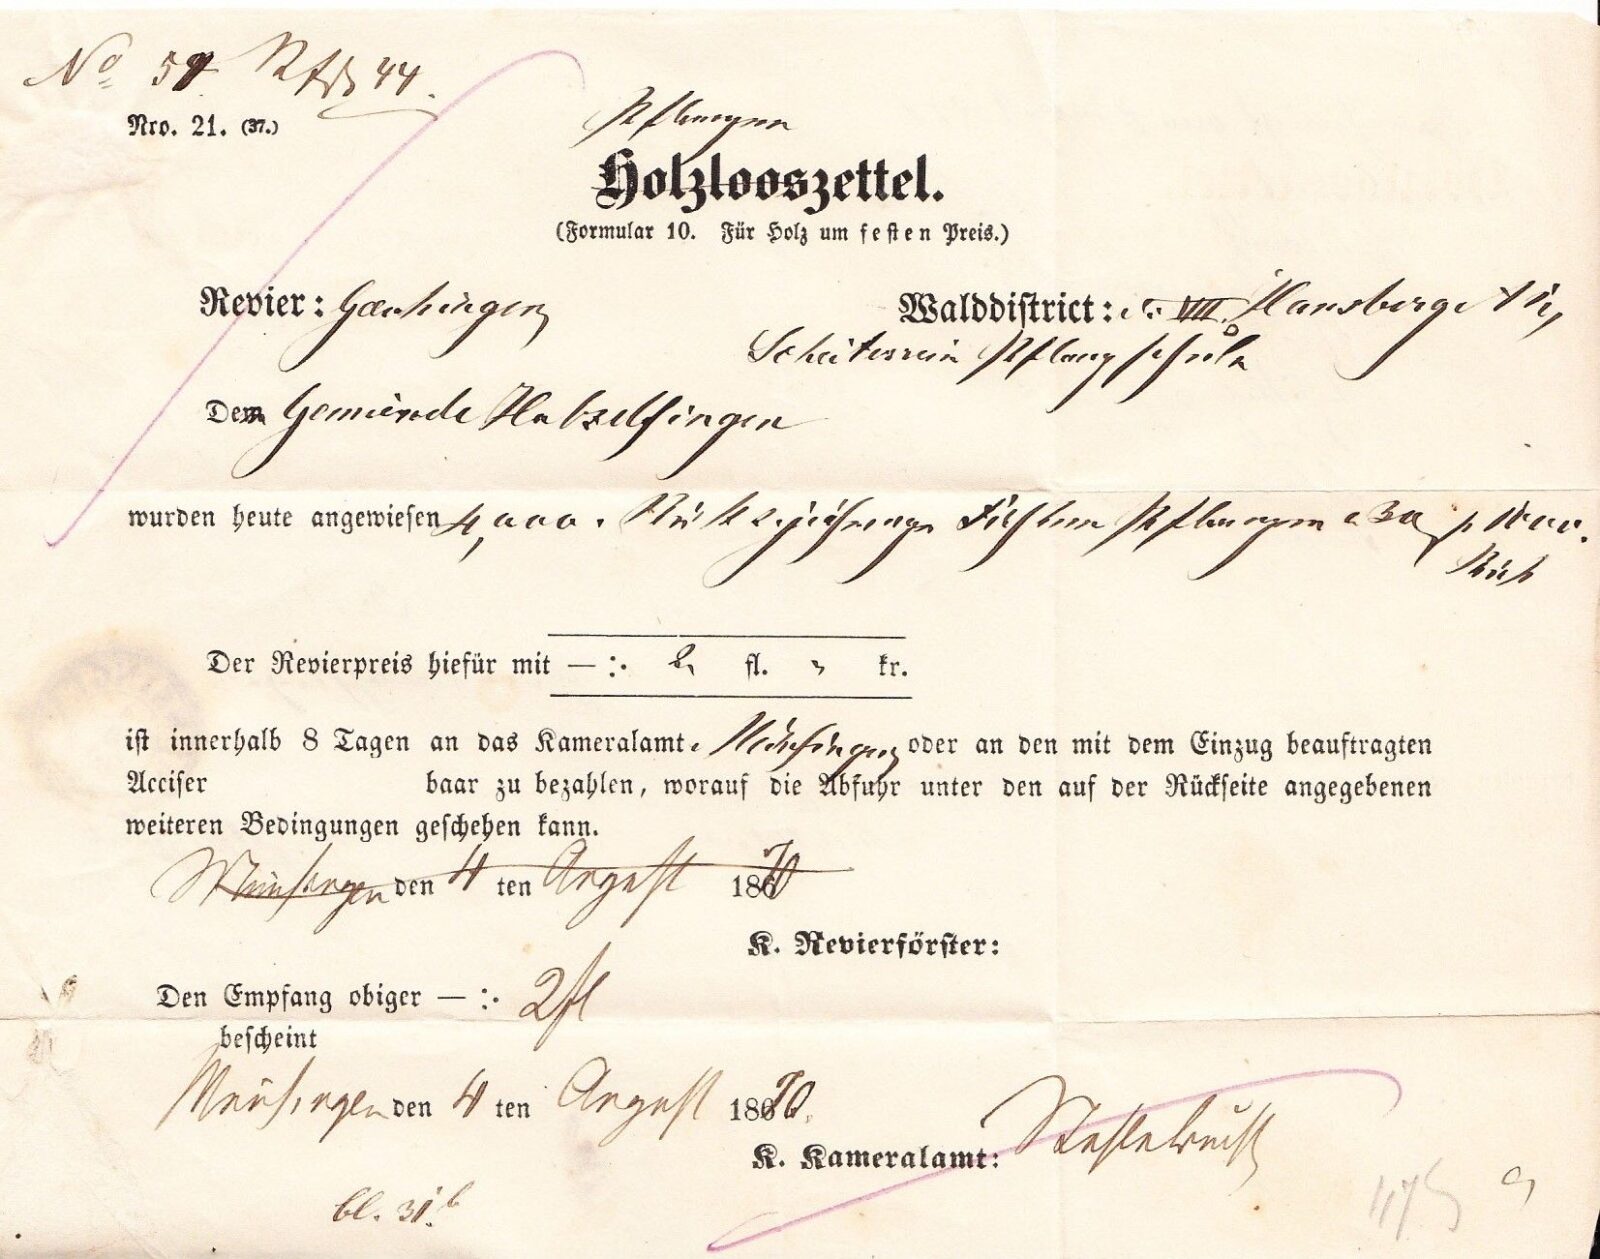 No 59. 44.
Nro. 21. (37.)
Pflanzen
Holzlooszettel.
(Formular 10. Für Holz um festen Preis.)
Revier: Walddistrict: VIII.
Pflanzschule
Der Gemeinde
wurden heute angewiesen 4,000. Stück 2jährige Fichten Pflanzen a 30 p 1000.
Stück
Der Revierpreis hiefür mit — :. 2 fl. " kr.
ist innerhalb 8 Tagen an das Kameralamt Münsingen oder an den mit dem Einzug beauftragten
Acciser baar zu bezahlen, worauf die Abfuhr unter den auf der Rückseite angegebenen
weiteren Bedingungen geschehen kann.
Münsingen den 4 ten August 1870
K. Revierförster:
Den Empfang obiger — :. 2 fl
bescheint
Münsingen den 4 ten August 1870.
K. Kameralamt:
bl. 31.b